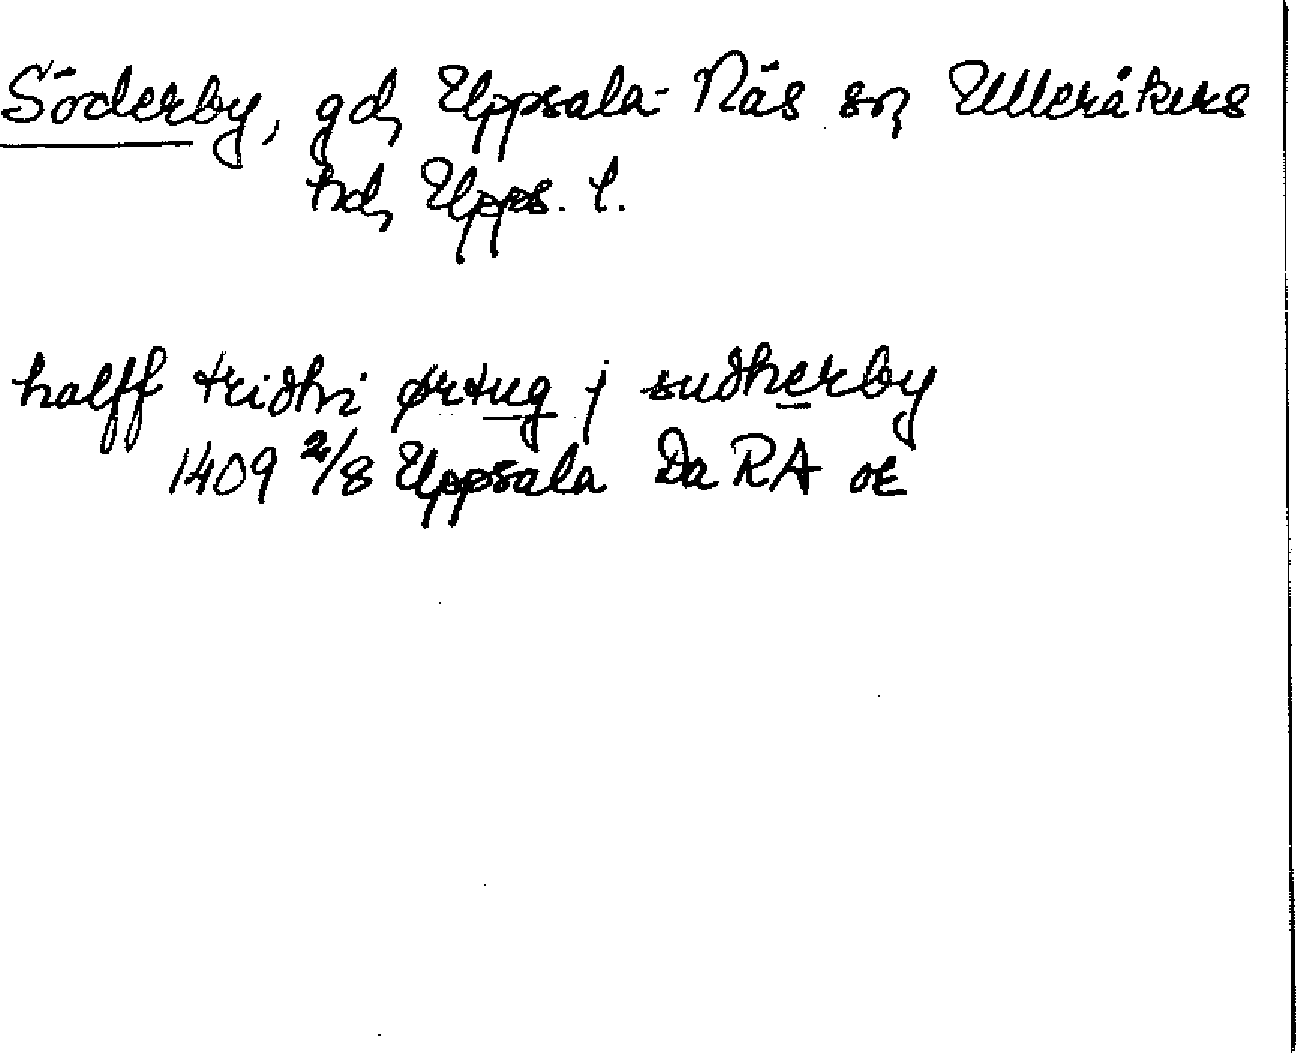 Söderby, gd, Uppsala-Näs sn, Ulleråkers
hd, Upps. l.
halff tridhi ørtug j sudherby
1409 2/8 Uppsala Da RA oE